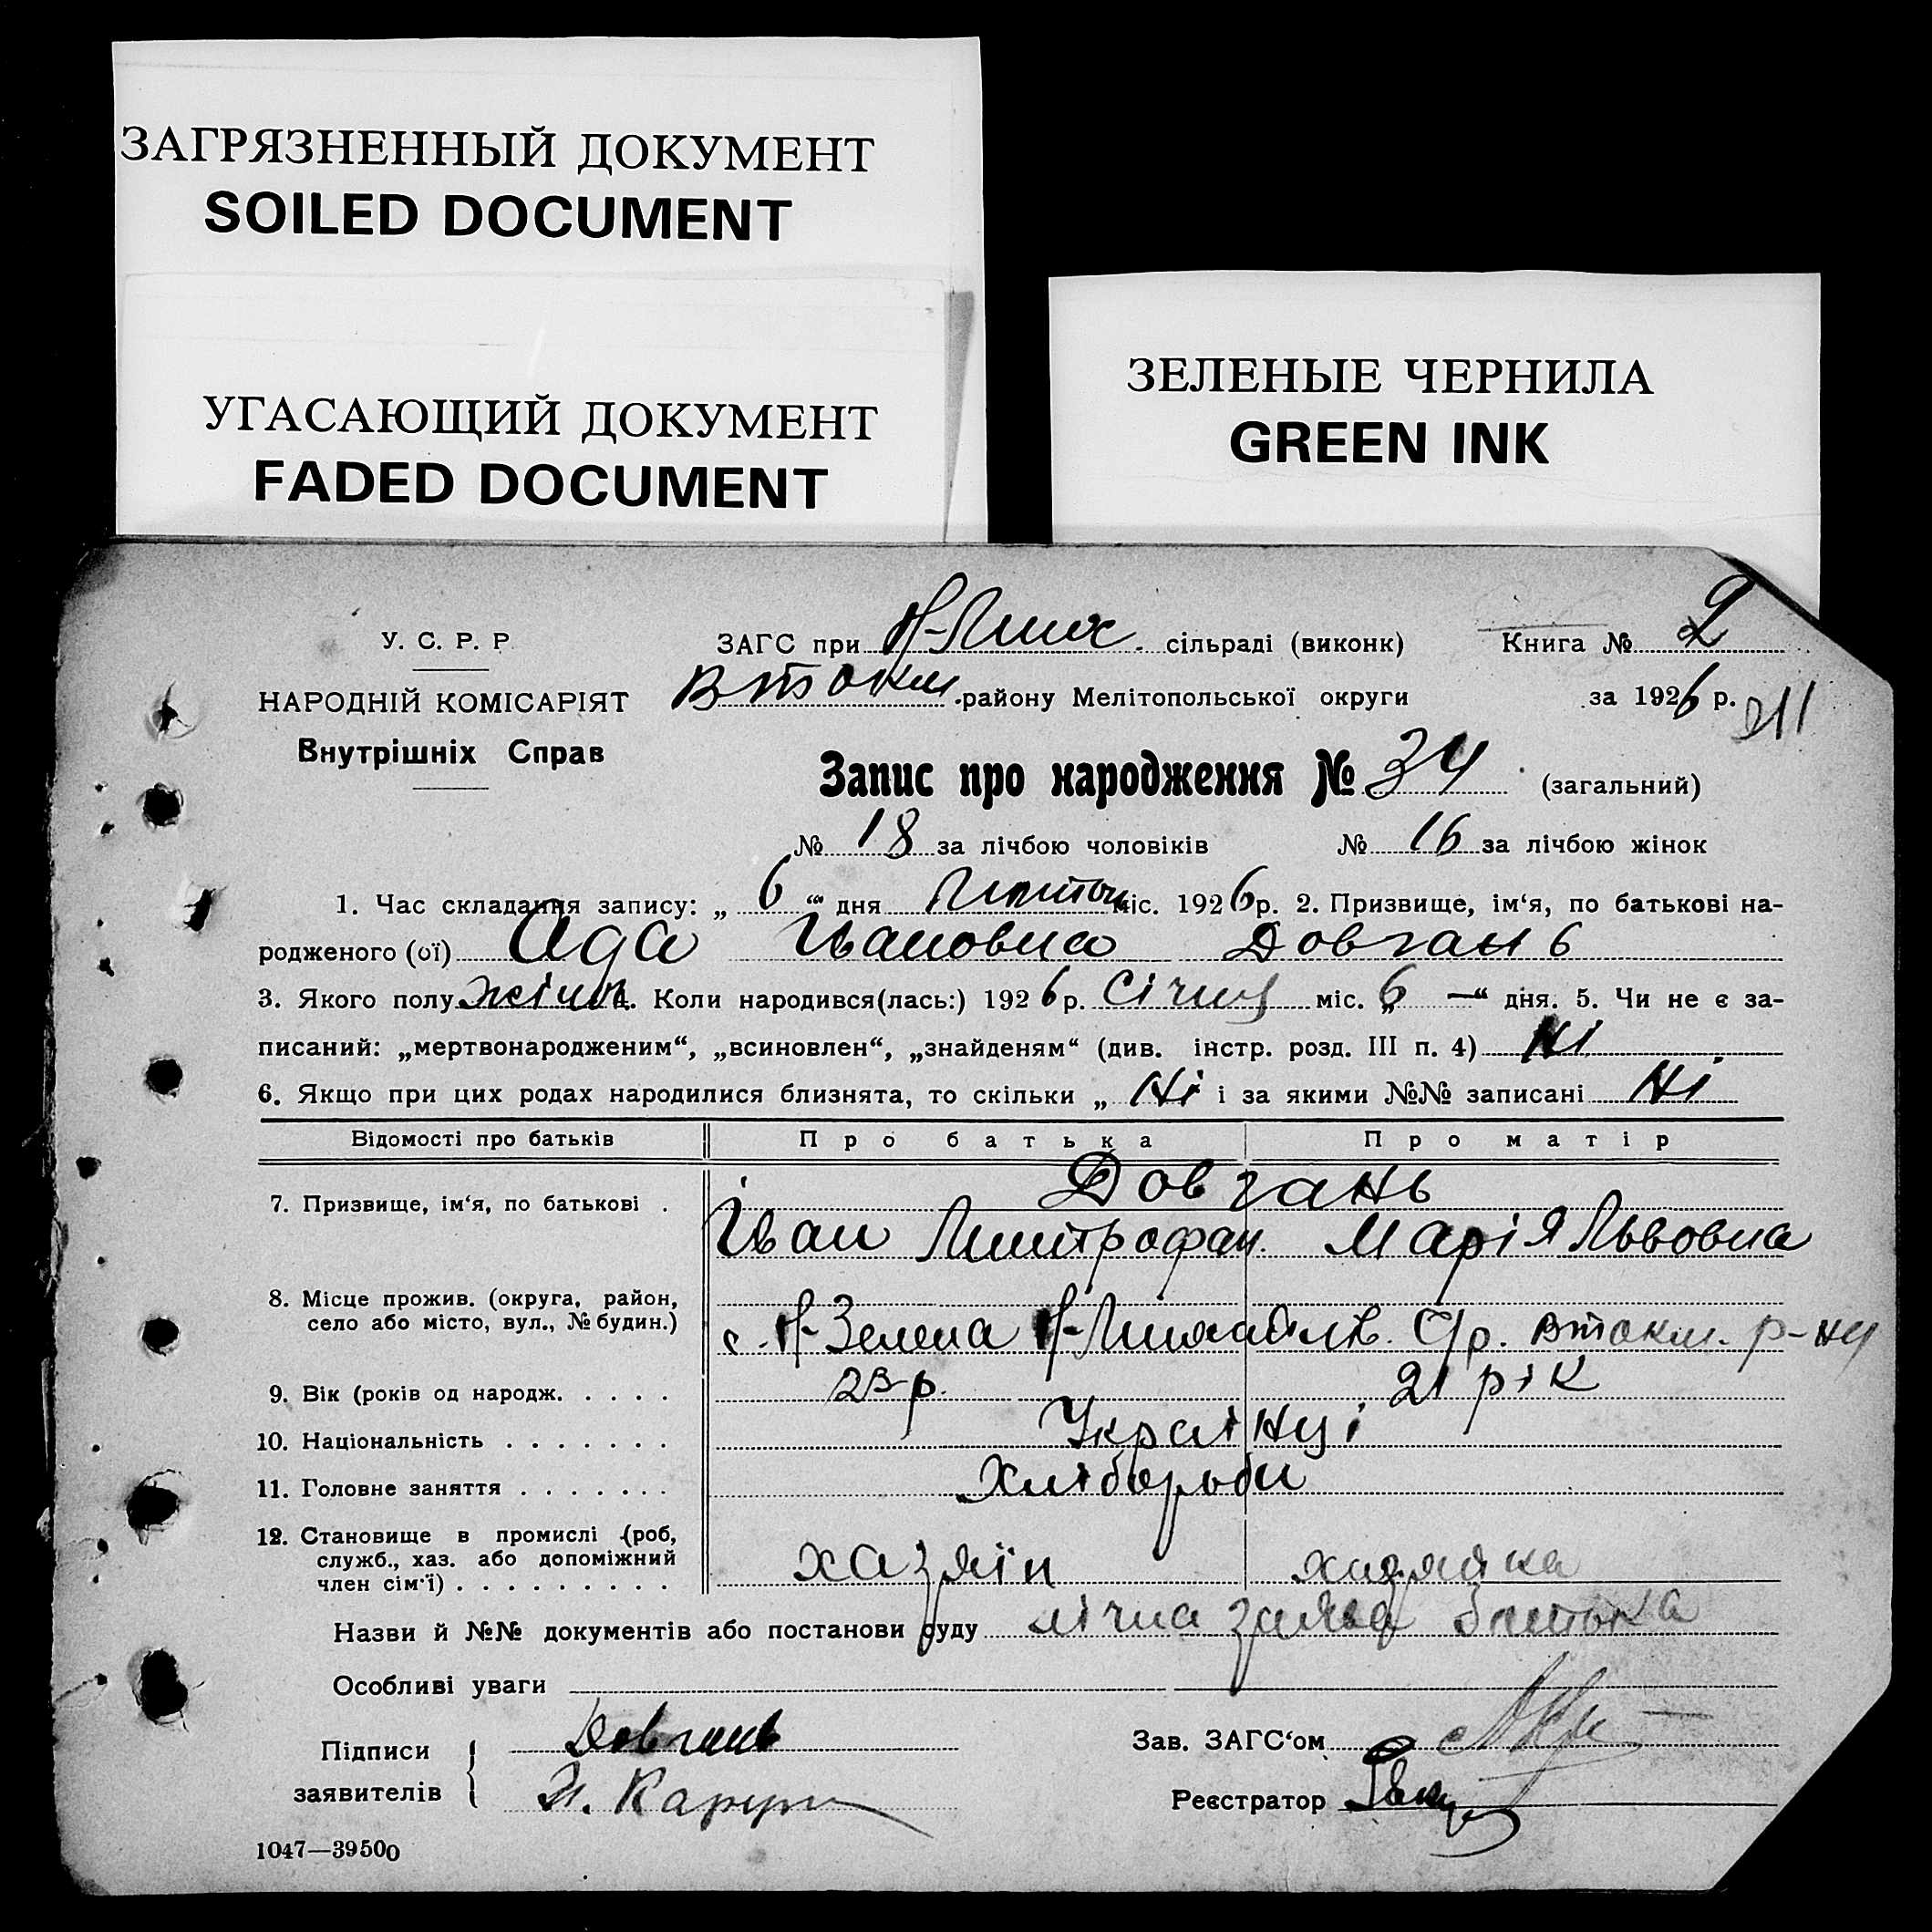 ЗАГРЯЗНЕННЫЙ ДОКУМЕНТ
SOILED DOCUMENT
УГАСАЮЩИЙ ДОКУМЕНТ
FADED DOCUMENT
ЗЕЛЕНЫЕ ЧЕРНИЛА
GREEN INK
У. С. Р. Р.
НАРОДНІЙ КОМІСАРІЯТ
Внутрішніх Справ
ЗАГС при Н-Мих. сільраді (виконк) Книга № 2
Втокм. району Мелітопольської округи за 1926 р.
211
Запис про народження № 34 (загальний)
№ 18 за лічбою чоловіків № 16 за лічбою жінок
1. Час складання запису: „ 6 “ дня міс. 1926 р. 2. Призвище, ім‘я, по батькові на-
родженого (ої) Ада Івановна Довгань
3. Якого полу жіноч. 4. Коли народився(лась:) 1926 р. Січня міс. „6 —“ дня. 5. Чи не є за-
писаний: „мертвонародженим“, „всиновлен“, „знайденям“ (див. інстр. розд. III п. 4) Ні
6. Якщо при цих родах народилися близнята, то скільки „ Ні і за якими №№ записані Ні
Відомості про батьків Про батька Про матір
7. Призвище, ім‘я, по батькові . Довгань
Іван Митрофан. Марія Львовна
8. Місце прожив. (округа, район,
село або місто, вул., № будин.) с. Н-Зелена Н-Михайлів. С/р. Втокм. р-ну
9. Вік (років од народж. . . . . 23 р. 21 рік
10. Національність . . . . . . . Українці
11. Головне заняття . . . . . . . Хлібороби
12. Становище в промислі (роб,
служб., хаз. або допоміжний
член сім‘ї) . . . . . . . . . хазяїн хазяйка
Назви й №№ документів або постанови суду лічна заява батька
Особливі уваги
Підписи
заявителів Довгань
Зав. ЗАГС‘ом
Реєстратор
1047—39500